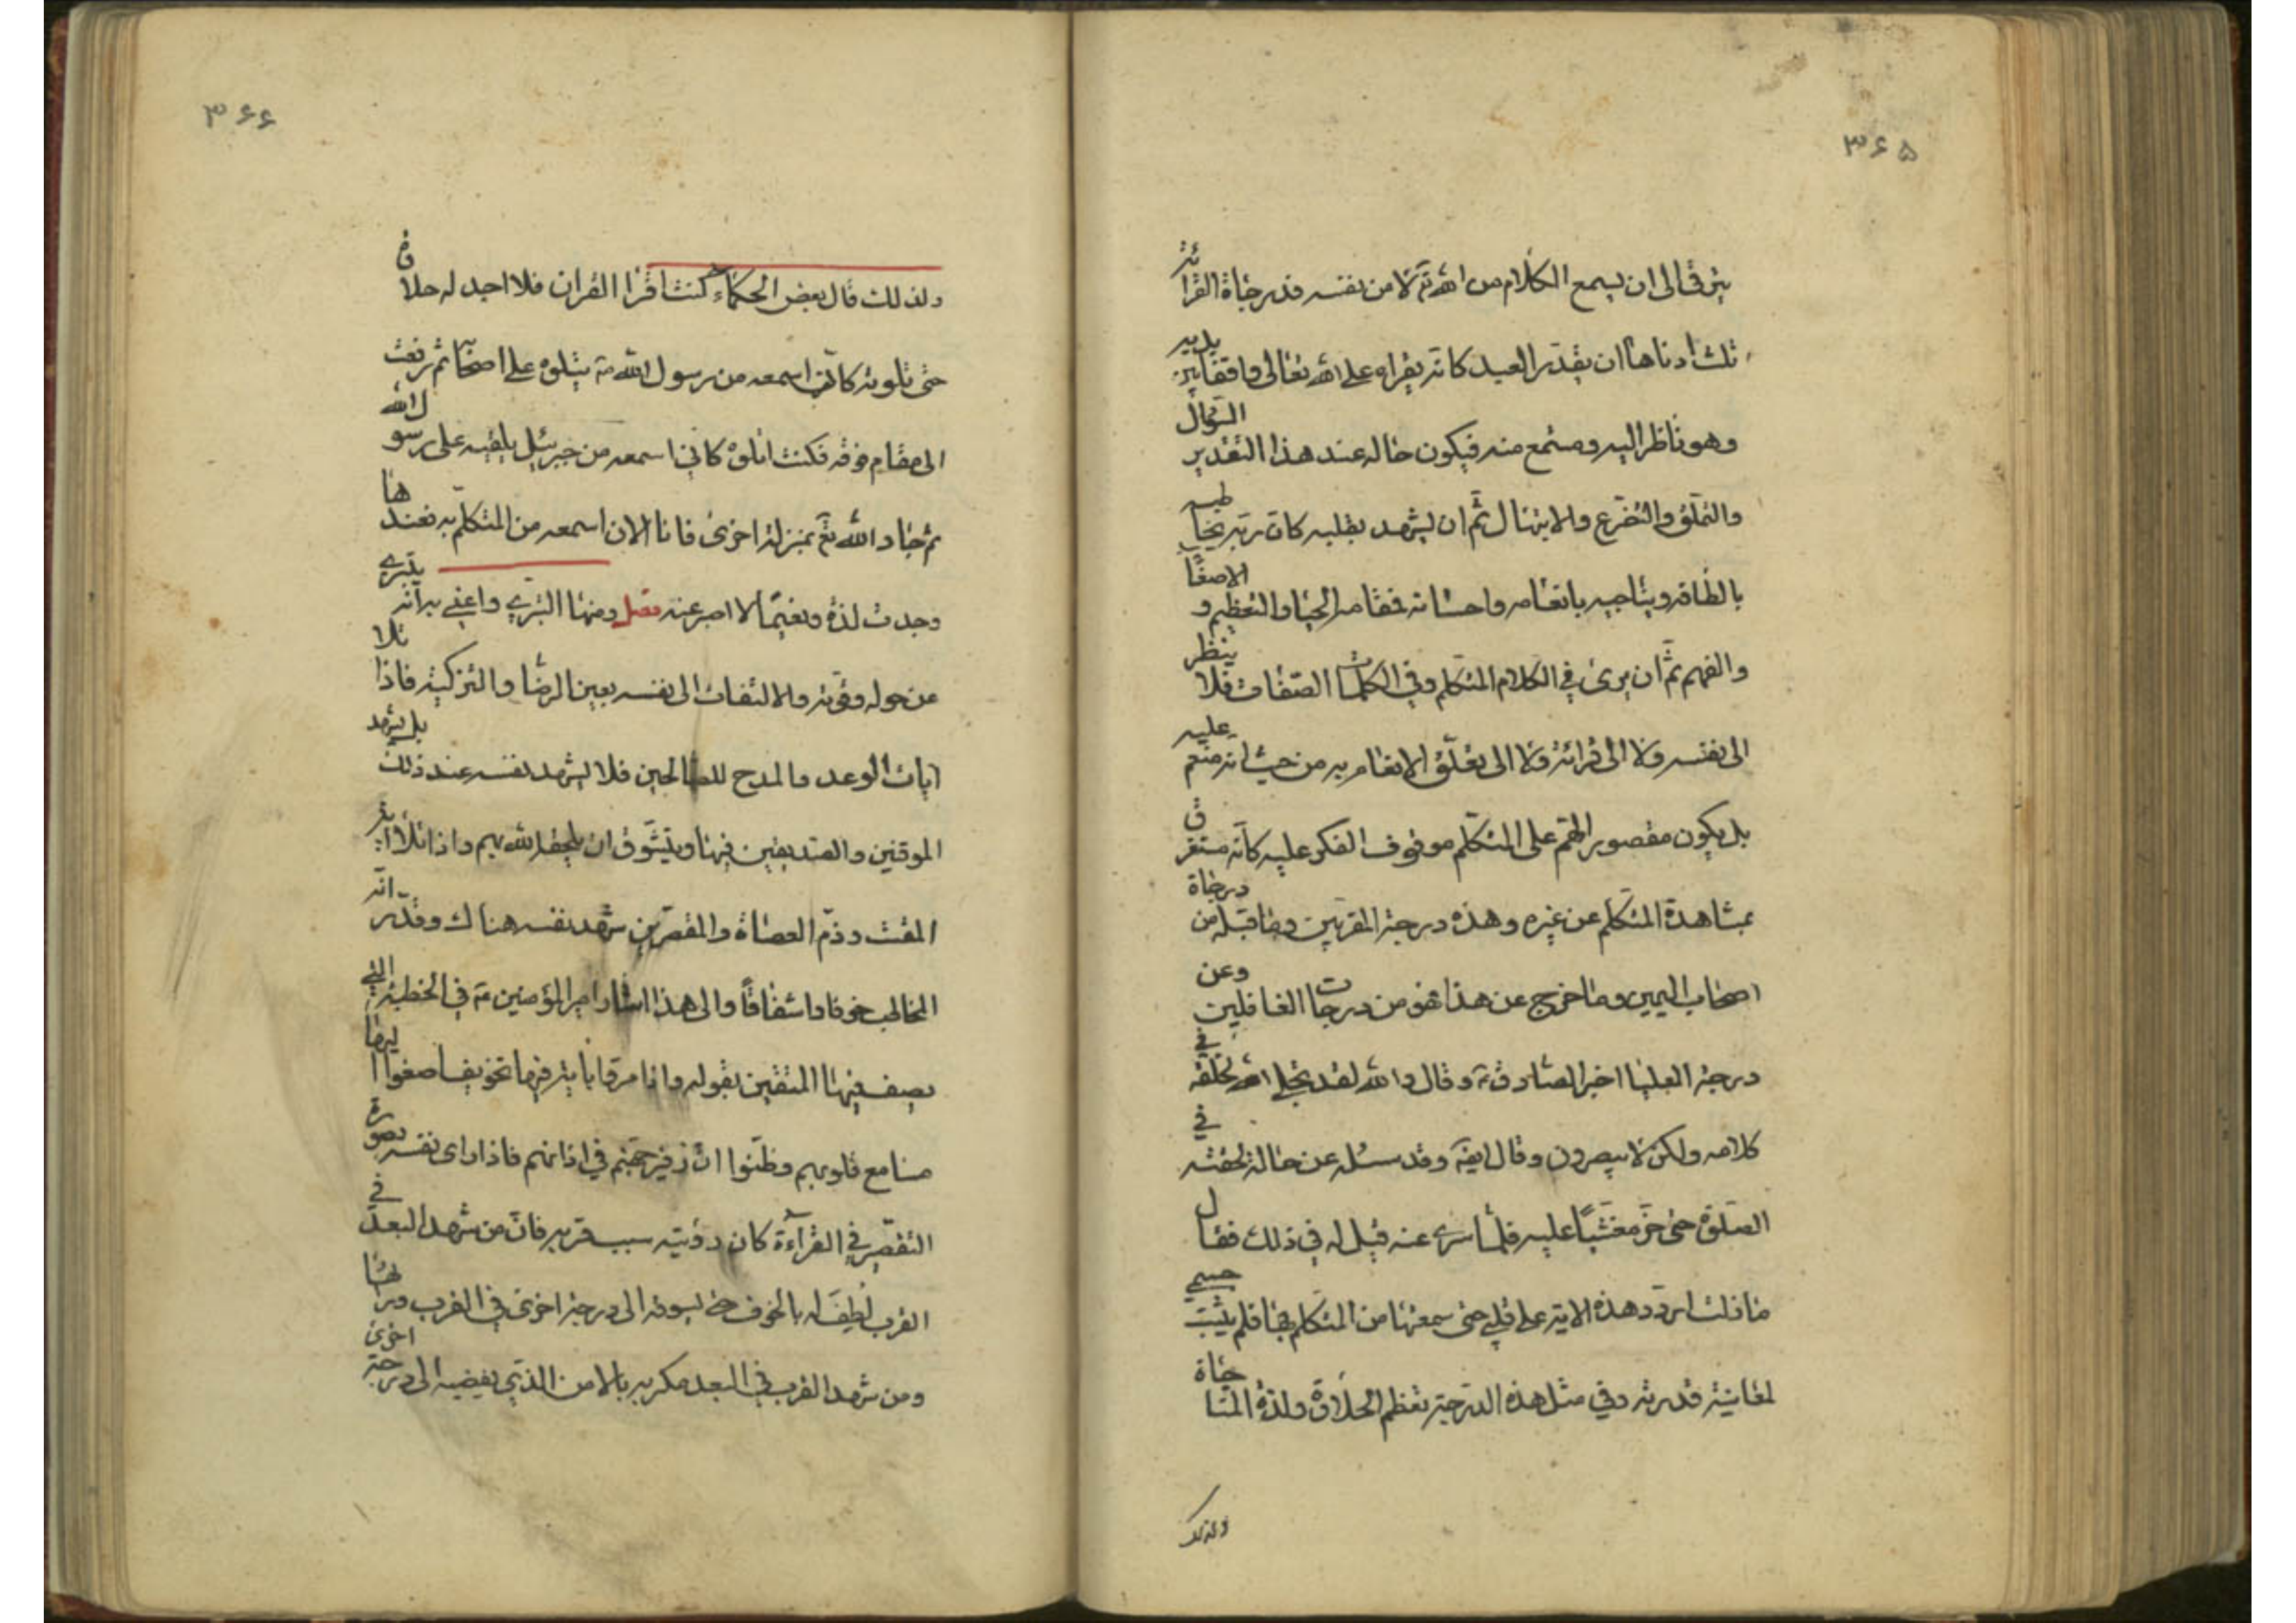 ۳۶۵
يترقى الى ان يسمع الكلام من الله تع لا من نفسه فدرجاة القرائة
ثلث ادناها ان يقدر العبد كانه يقراه على الله تعالى واقفا بين يديه
وهو ناظر اليه ومستمع منه فيكون حاله عند هذا التقدير السؤال
والتملق والتضرع والابتهال ثم ان يشهد بقلبه كان ربه يخاطبه
بالطافه ويناجيه بانعامه واحسانه فمقامه الحيا والتعظيم و الاصغا
والفهم ثم ان يرى في الكلام المتكلم وفي الكلمات الصفات فلا ينظر
الى نفسه ولا الى قرائته ولا الى تعلق الانعام به من حيث انه منعم عليه
بل يكون مقصور الهم على المتكلم موقوف الفكر عليه كانه مستغرق
بمشاهدة المتكلم عن غيره وهذه درجة المقربين وما قبله من درجاة
اصحاب اليمين وما خرج عن هذا فهو من درجات الغافلين وعن
درجة العليا اخبر الصادق ع وقال والله لقد تجلى الله لخلقه في
كلامه ولكن لا يبصرون وقال ايضا وقد سئل عن حالة لحقته في
الصلوة حتى خر مغشيا عليه فلما سرى عنه قيل له في ذلك فقال
مازلت اردد هذه الاية على قلبي حتى سمعتها من المتكلم بها فلم يثبت جسمي
لمعاينة قدرته وفي مثل هذه الدرجة تعظم الحلاوة ولذة المناجاة
ولذلك
۳۶۶
ولذلك قال بعض الحكماء كنت اقرا القران فلا اجد له حلاوة
حتى تلوته كاني اسمعه من رسول الله ص يتلوه على اصحابه ثم رفعت
الى مقام فوقه فكنت اتلوه كاني اسمعه من جبرئيل يلقيه على رسول الله
ثم جاد الله تع بمنزلة اخرى فانا الان اسمعه من المتكلم به فعندها
وجدت لذة ونعيما لا اصبر عنه فصل ومنها التبري واعني به انه يتبرى
من حوله وقوته والالتفات الى نفسه بعين الرضا والتزكية فاذا تلا
ايات الوعد والمدح للصالحين فلا يشهد نفسه عند ذلك بل يشهد
الموقنين والصديقين فيها ويتشوق ان يلحقه الله بهم واذا تلا اية
المقت وذم العصاة والمقصرين شهد نفسه هناك وقدر انه
المخاطب خوفا واشفاقا والى هذا اشار امير المؤمنين ع في الخطبة التي
يصف فيها المتقين بقوله واذا مروا باية فيها تخويف اصغوا اليها
مسامع قلوبهم وظنوا ان زفير جهنم في اذانهم فاذا راى نفسه بصورة
التقصير في القرآءة كان رؤيته سبب قربه فان من شهد البعد في
القرب لطف له بالخوف حتى يسوقه الى درجة اخرى في القرب ورائها
ومن شهد القرب في البعد مكر به بالامن الذي يفضيه الى درجة اخرى